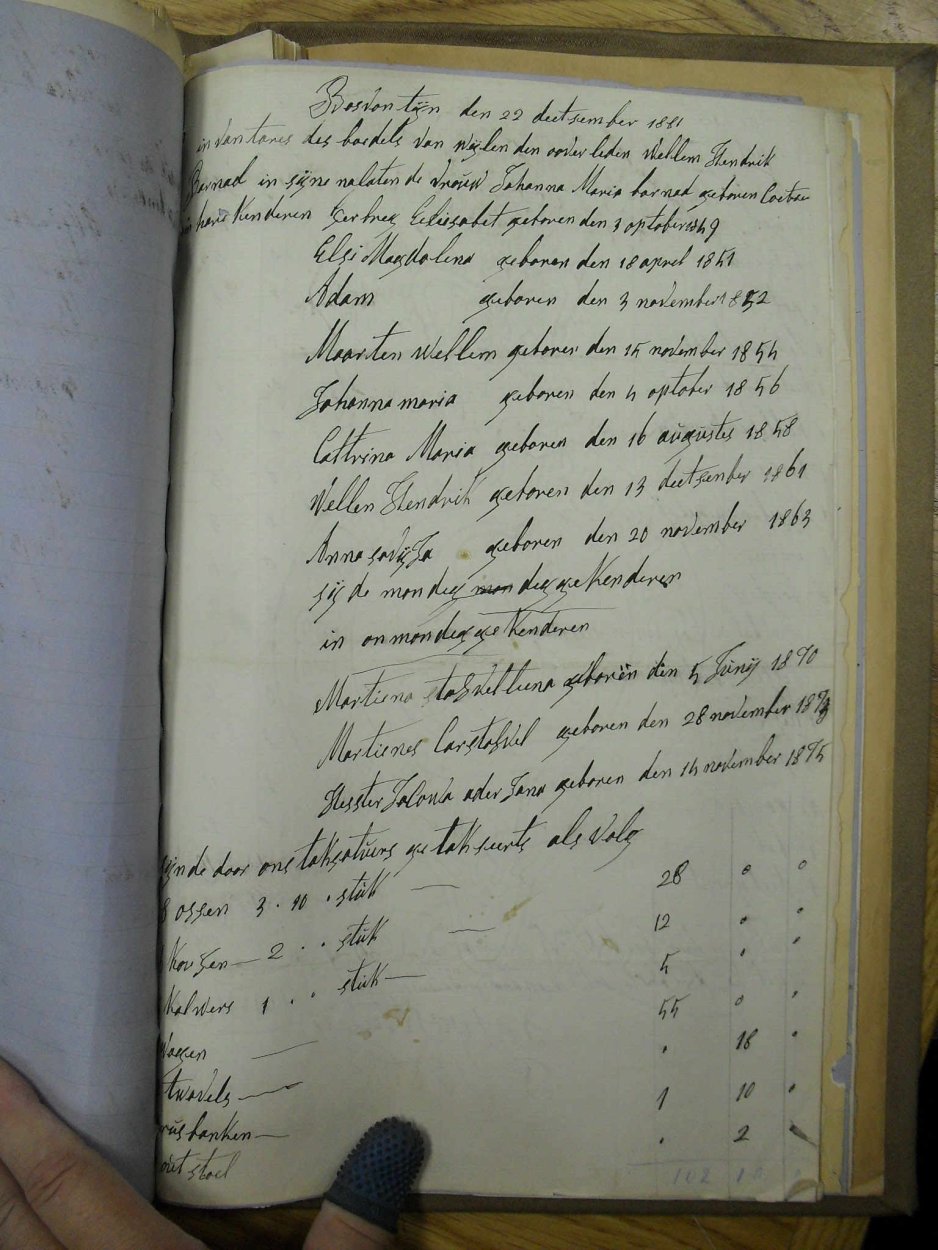 Bosvontyn den 22 deetsember 1881
in van tares des boedels van wylen den oover leden Wellem Hendrik
Barnad in syne nalaten de vrouw Johanna Maria barnad geboren Coetse
hare Kenderen Gerbreg Eeliesabet geboren den 3 optober 1849
Elsi Magdalena geboren den 18 aprel 1851
Adam geboren den 3 november 1852
Maarten wellem geboren den 15 november 1854
Johanna maria geboren den 4 optober 1856
Cattrina Maria geboren den 16 augustes 1858
Wellen Hendrik geboren den 13 deetsenber 1861
Anna sovyJa geboren den 20 november 1863
syde mondeg mon deg ge Kenderen
in onmondeg ge Kenderen
Martiena geboren den 5 Juny 1870
Martienes geboren den 28 november
Hesster ader Jana geboren den 14 november 1875
ynde door ons taksatuers ge tak seerts als Volg
ossen 3 · 10 · stuk — 28 0 0
Koe Jen — 2 · · stuk — 12 · ·
Kalvers 1 · · stuk — 5 · ·
Wagen — 55 0 ·
twavels — · 18 ·
rus banken — 1 10 ·
out stoel · 2
102 10